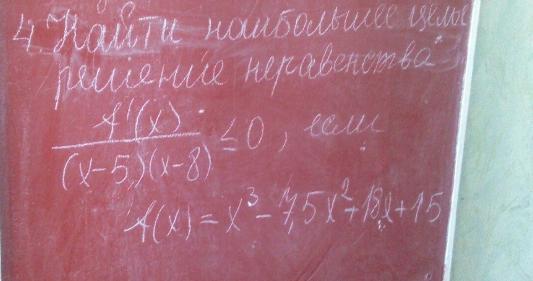 4. Найти наибольшее целое
решение неравенства
f'(x)
(x-5)(x-8) ≤ 0, если
f(x) = x³ - 7,5x² + 18x + 15